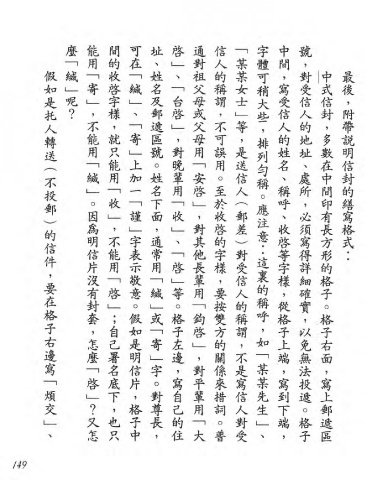 最後，附帶說明信封的繕寫格式：
中式信封，多數在中間印有長方形的格子。格子右面，寫上郵遞區
號，對受信人的地址、處所，必須寫得詳細確實，以免無法投遞。格子
中間，寫受信人的姓名、稱呼、收啓等字樣，從格子上端，寫到下端，
字體可稍大些，排列勻稱。應注意：這裏的稱呼，如「某某先生」、
「某某女士」等，是送信人（郵差）對受信人的稱謂，不是寫信人對受
信人的稱謂，不可誤用。至於收啓的字樣，要按雙方的關係來措詞。普
通對祖父母或父母用「安啓」，對其他長輩用「鈞啓」，對平輩用「大
啓」、「台啓」，對晚輩用「收」、「啓」等。格子左邊，寫自己的住
址、姓名及郵遞區號。姓名下面，通常用「緘」或「寄」字。對尊長，
可在「緘」、「寄」上加一「謹」字表示敬意。假如是明信片，格子中
間的收啓字樣，就只能用「收」，不能用「啓」；自己署名底下，也只
能用「寄」，不能用「緘」。因爲明信片沒有封套，怎麼「啓」？又怎
麼「緘」呢？
假如是托人轉送（不投郵）的信件，要在格子右邊寫「煩交」、
149